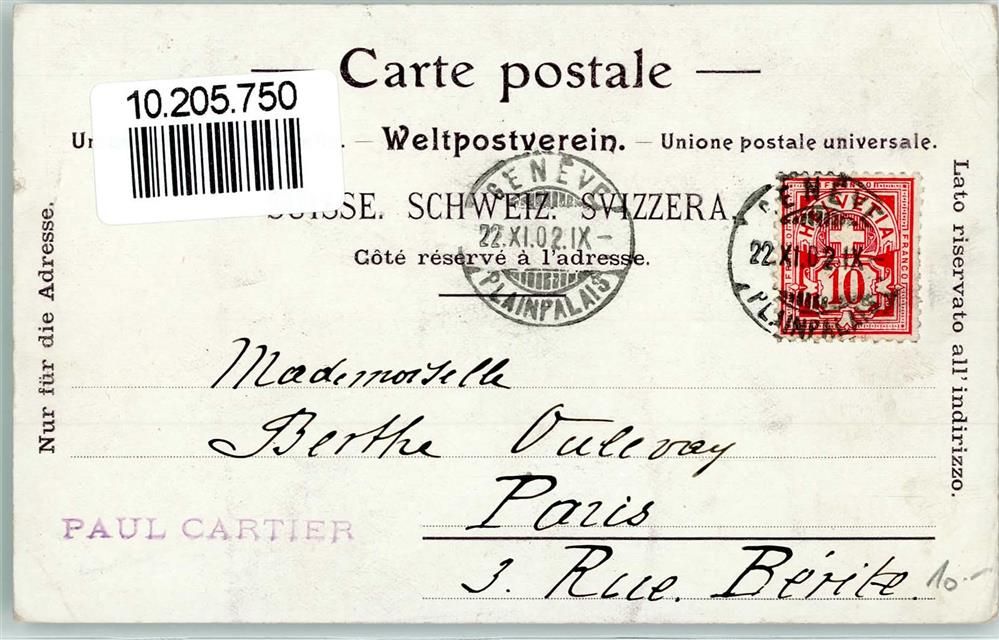 Carte postale
10.205.750
Weltpostverein. — Unione postale universale.
SUISSE. SCHWEIZ. SVIZZERA.
Côté réservé à l'adresse.
Nur für die Adresse.
Lato riservato all' indirizzo.
GENÈVE
22.XI.02.IX-
PLAINPALAIS
GENÈVE
22.XI.02.IX-
PLAINPALAIS
HELVETIA
FRANCO
10
Mademoiselle
Berthe Vulevay
Paris
3. Rue. Bérite.
PAUL CARTIER
10.-